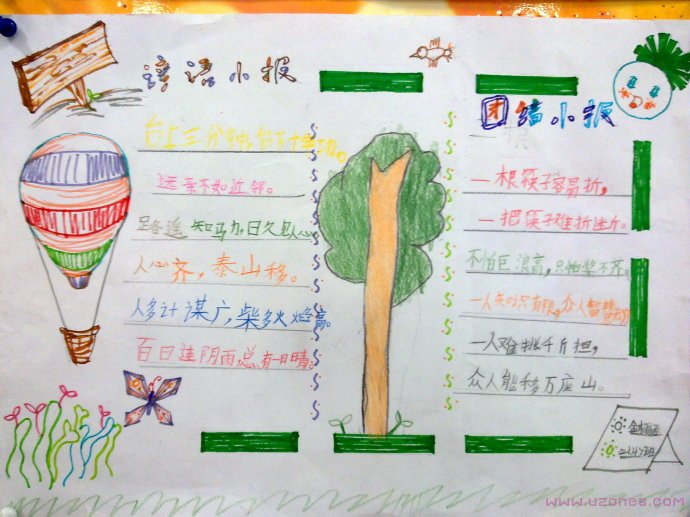 谚语小报
台上三分钟,台下十年功。
远亲不如近邻。
路遥知马力,日久见人心
人心齐,泰山移。
人多计谋广,柴多火焰高。
百日连阴雨,总有一日晴。
团结小报
一根筷子容易折,
一把筷子难折断。
不怕巨浪高,只怕桨不齐。
一人知识有限,众人智慧无穷
一人难挑千斤担,
众人能移万座山。
二(4)班
www.uzones.com